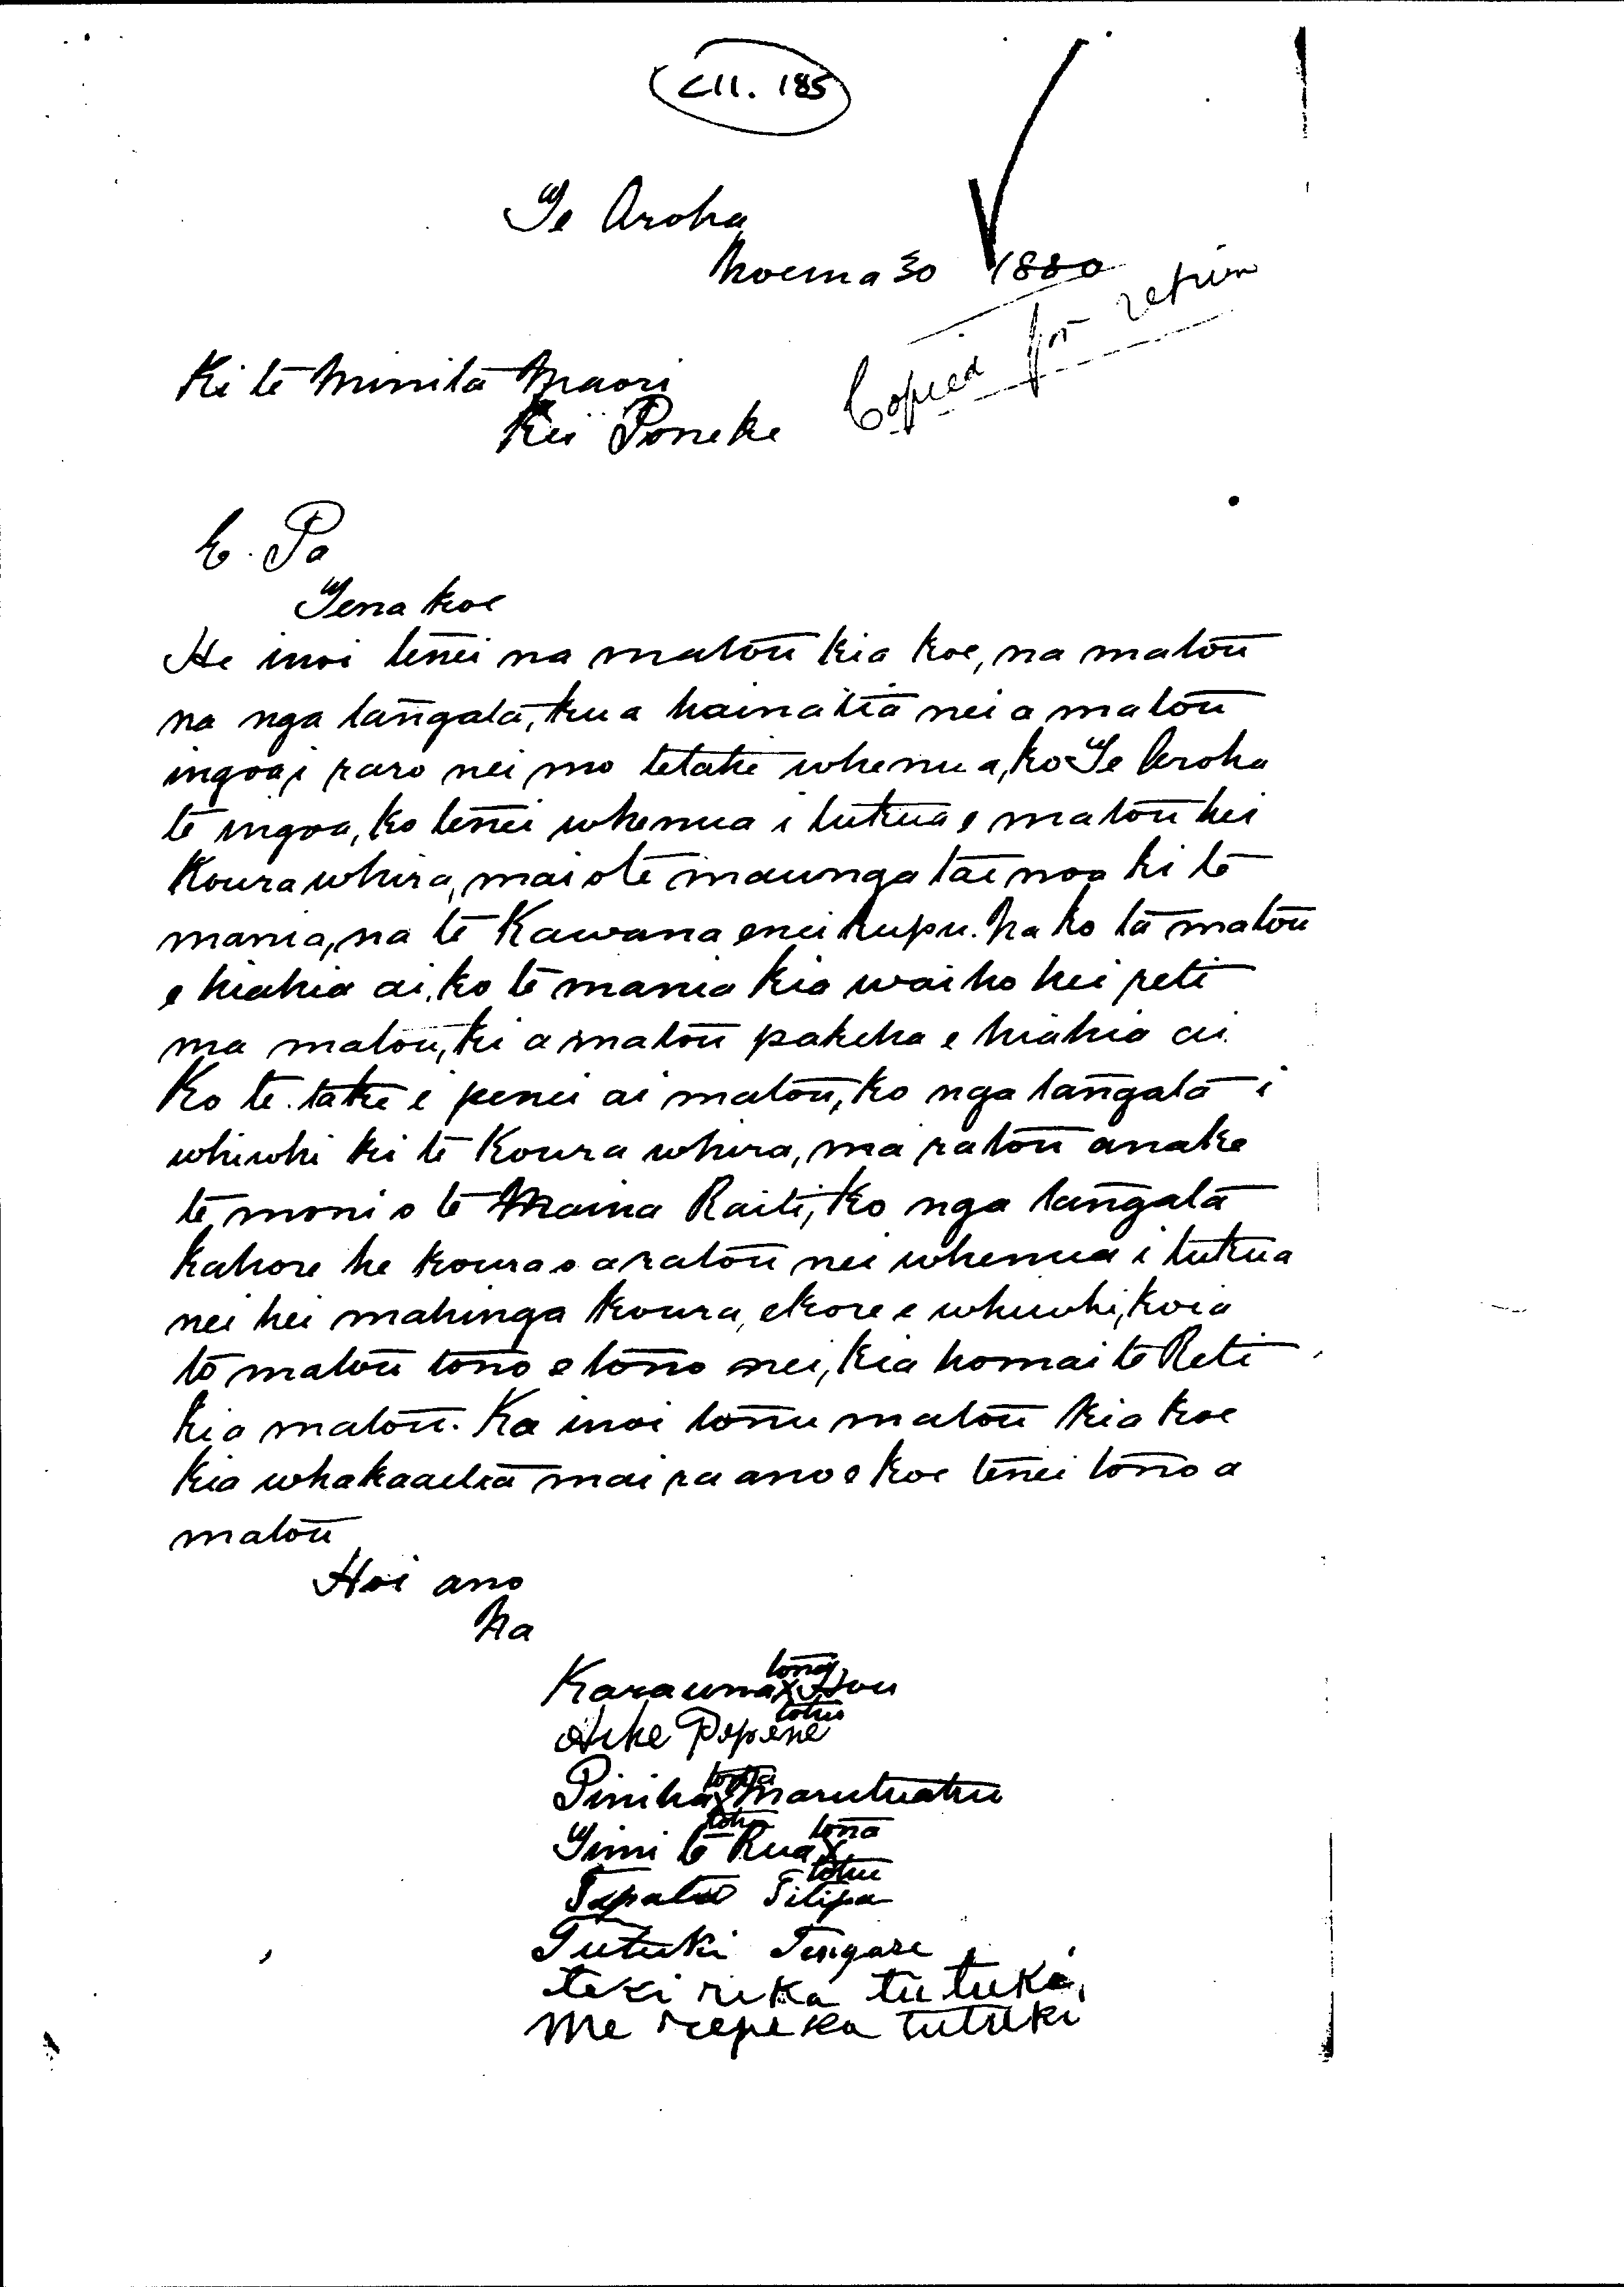 C11. 185
Te Aroha
Noema 30 1880
Copied for return
Ki te Minita Maori
Kei Poneke
E. Pa
Tena koe
He inoi tenei na matou kia koe, na matou
na nga tangata, kua hainatia nei a matou
ingoa i raro nei mo tetahi whenua, ko Te Aroha
te ingoa, ko tenei whenua i tukua e matou hei
Koura whira, mai o te maunga tae noa ki te
mania, na te Kawana enei kupu. Na ko ta matou
e hiahia ai, ko te mania kia waiho hei reti
ma matou, ki a matou pakeha e hiahia ai.
Ko te take i penei ai matou, ko nga tangata i
whiwhi ki te Koura whira, ma ratou anake
te moni o te Maina Raiti, ko nga tangata
kahore he koura o a ratou nei whenua i tukua
nei hei mahinga koura, ekore e whiwhi, koia
to matou tono e tono nei, kia homai te Reti
kia matou. Ka inoi tonu matou kia koe
kia whakaaetia mai ra ano e koe tenei tono a
matou
Hoi ano
Na
Karauna x Hou
tona tohu
Ake Popene
Piniha x Marutuatu
tona tohu
Timi te Rua x
tona tohu
Tapata Tilipa
Tutuki Tengare
teri rika tutuki,
Me repeka tutuki